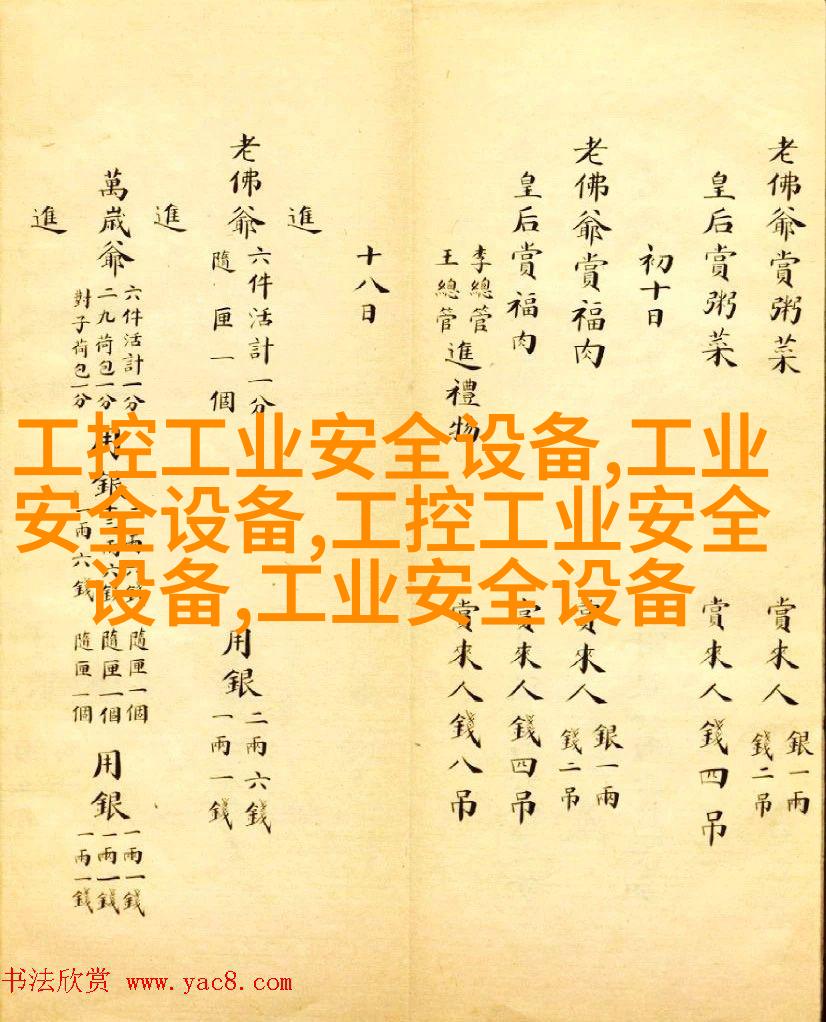 老佛爺賞粥菜 賞來人 銀一兩 錢二吊
皇后賞粥菜 賞來人錢四吊
初十日
老佛爺賞福肉 賞來人 銀一兩 錢二吊
皇后賞福肉 賞來人錢四吊
李總管 王總管 進禮物 賞來人錢八吊
十八日
進
老佛爺 六件活計一分 隨匣一個 用銀 二兩六錢 一兩一錢
進
萬歲爺 六件活計一分 二九荷包一分 對子荷包一分 用銀 兩六錢 一兩六錢 隨匣一個 隨匣一個 隨匣一個 用銀 一兩一錢 一兩一錢 一兩一錢
進
工控工业安全设备,工业
安全设备,工控工业安全
设备,工业安全设备
书法欣赏 www.yac8.com